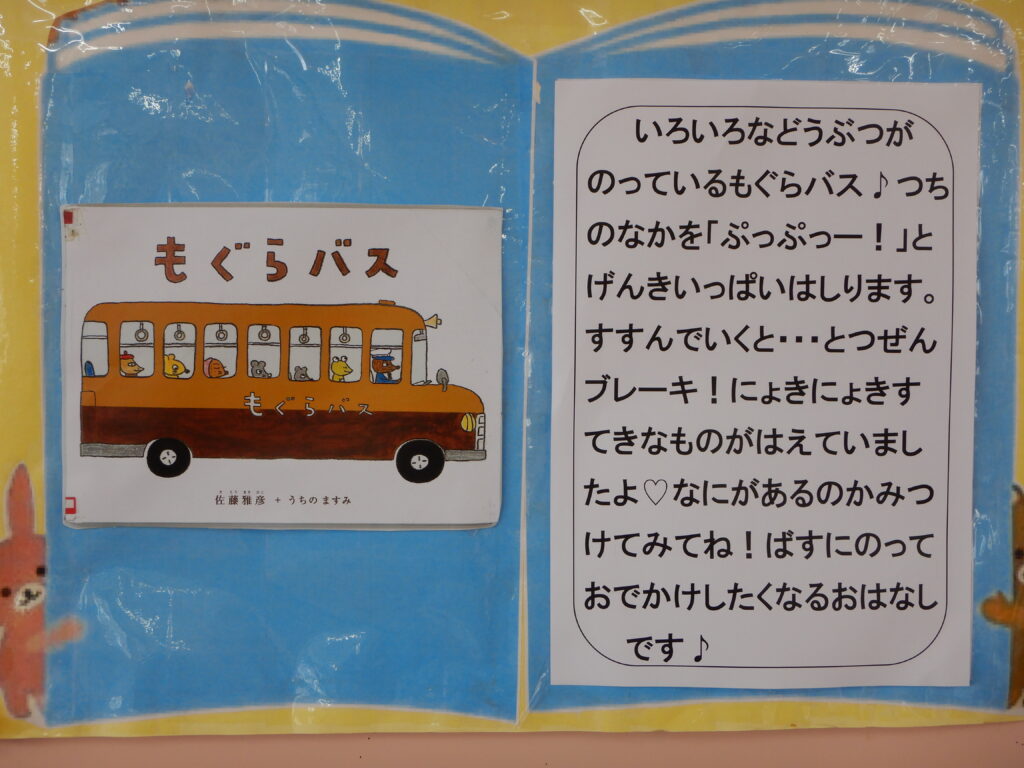 もぐらバス
もぐらバス
佐藤雅彦 + うちのますみ
いろいろなどうぶつが
のっているもぐらバス♪つち
のなかを「ぷっぷっー！」と
げんきいっぱいはしります。
すすんでいくと・・・とつぜん
ブレーキ！にょきにょきす
てきなものがはえていまし
たよ♡なにがあるのかみつ
けてみてね！ばすにのって
おでかけしたくなるおはなし
です♪